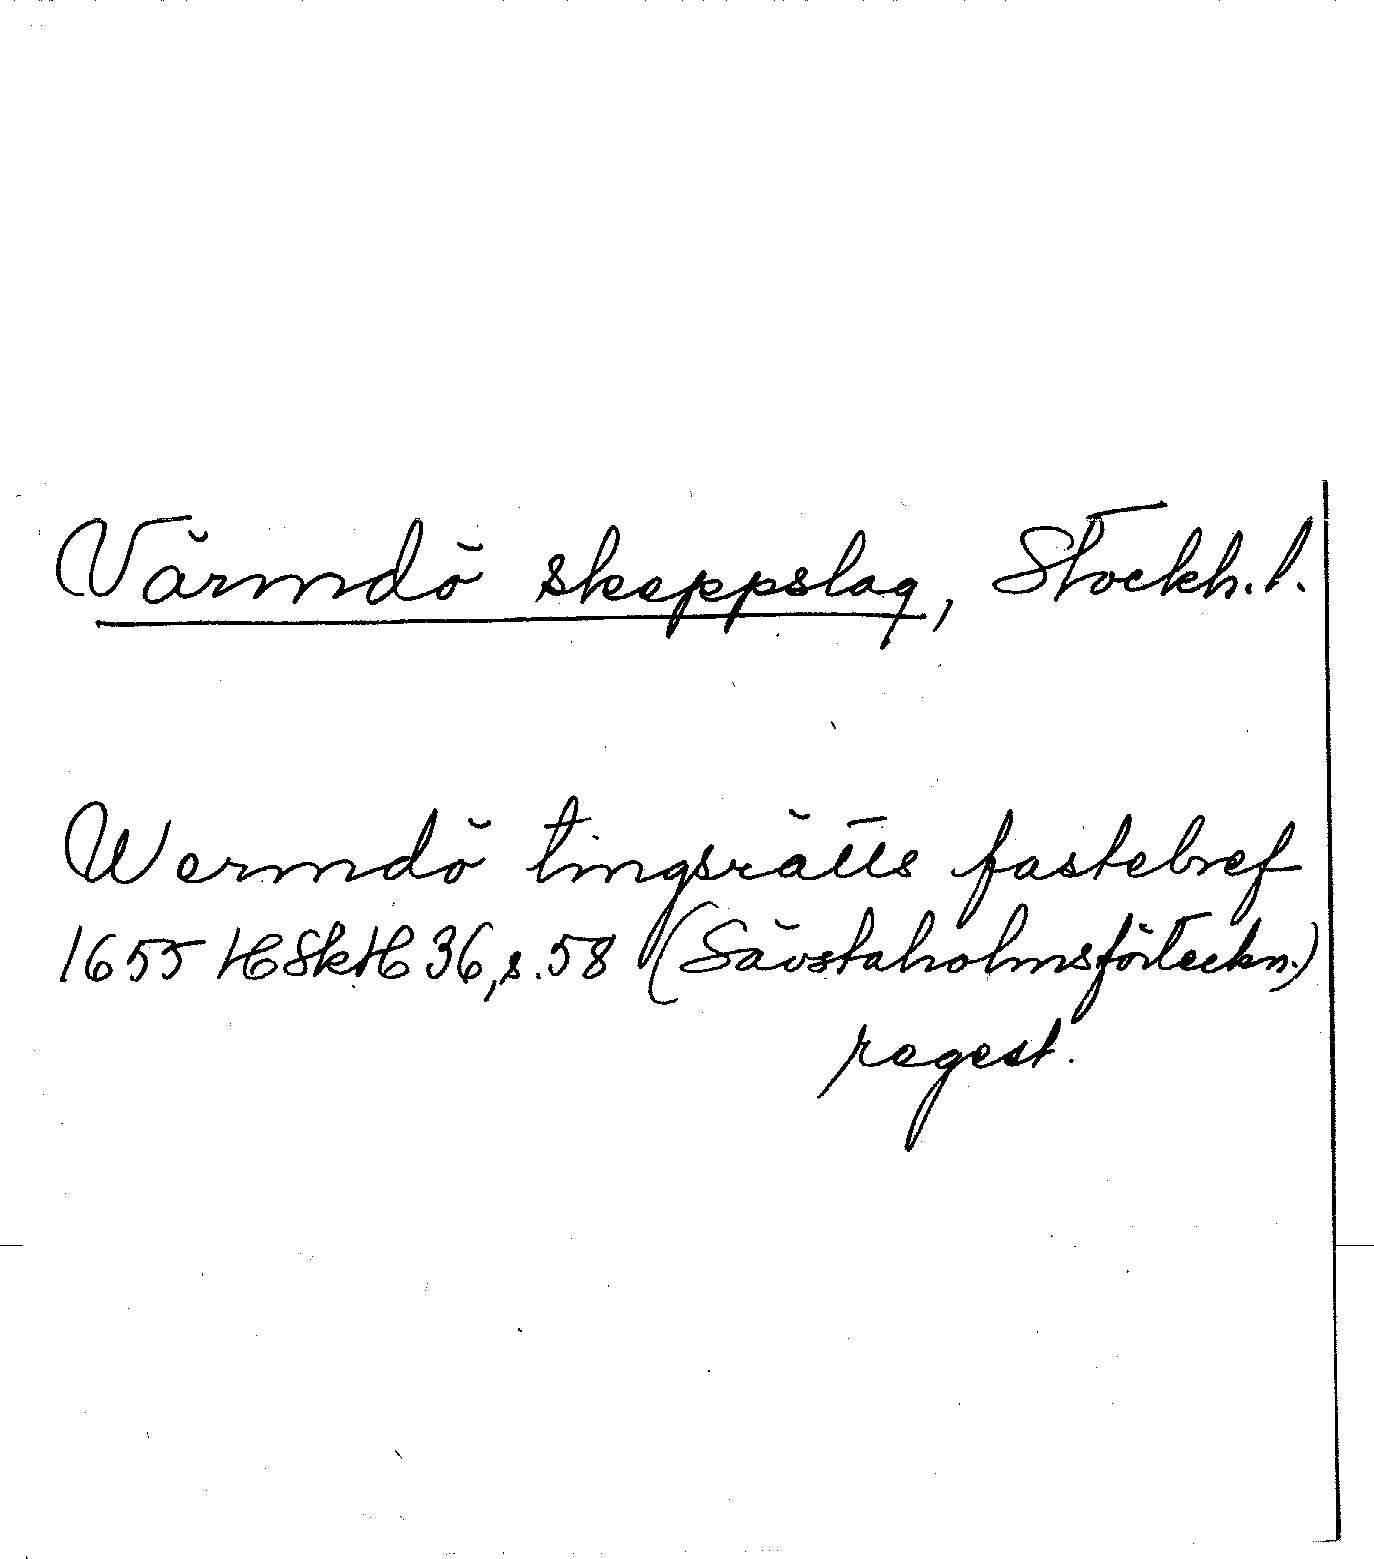 Värmdö skeppslag, Stockh. l.
Wermdö tingsrätts fastebref
1655 HSkH 36, s. 58 (Sävstaholmsförteckn.)
regest.